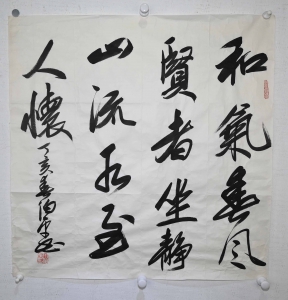 和氣春風
賢者坐靜
山流水至
人懷
丁亥春